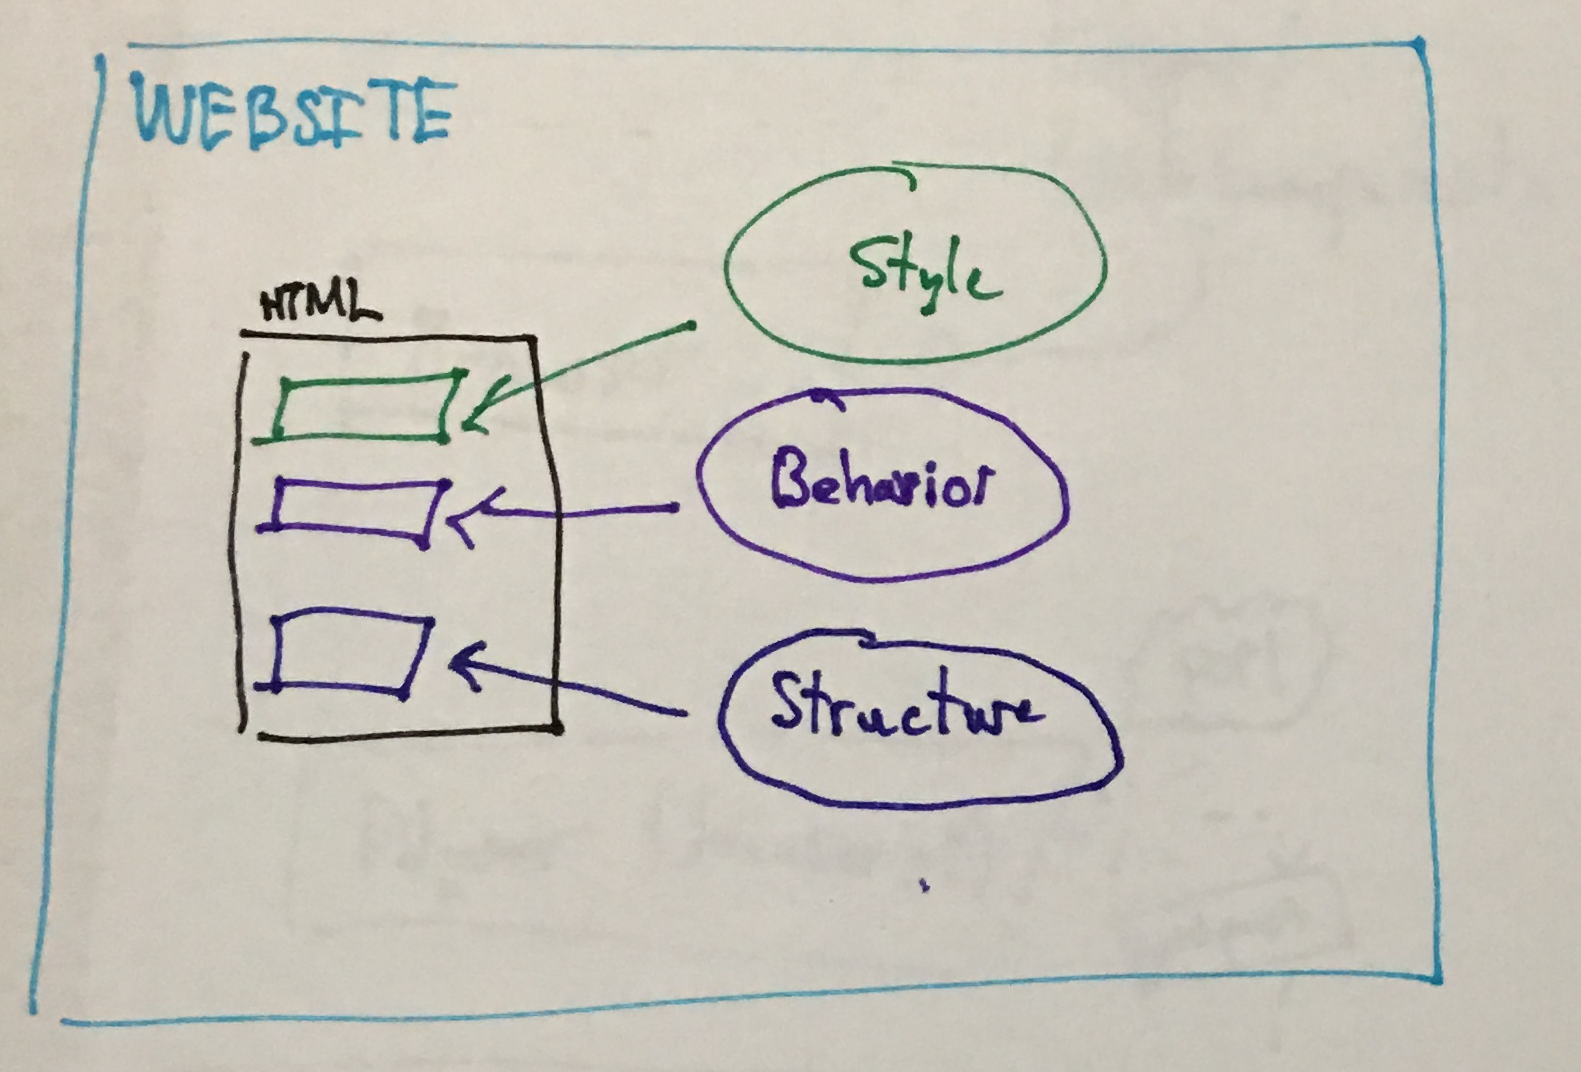 WEBSITE
HTML
Style
Behavior
Structure